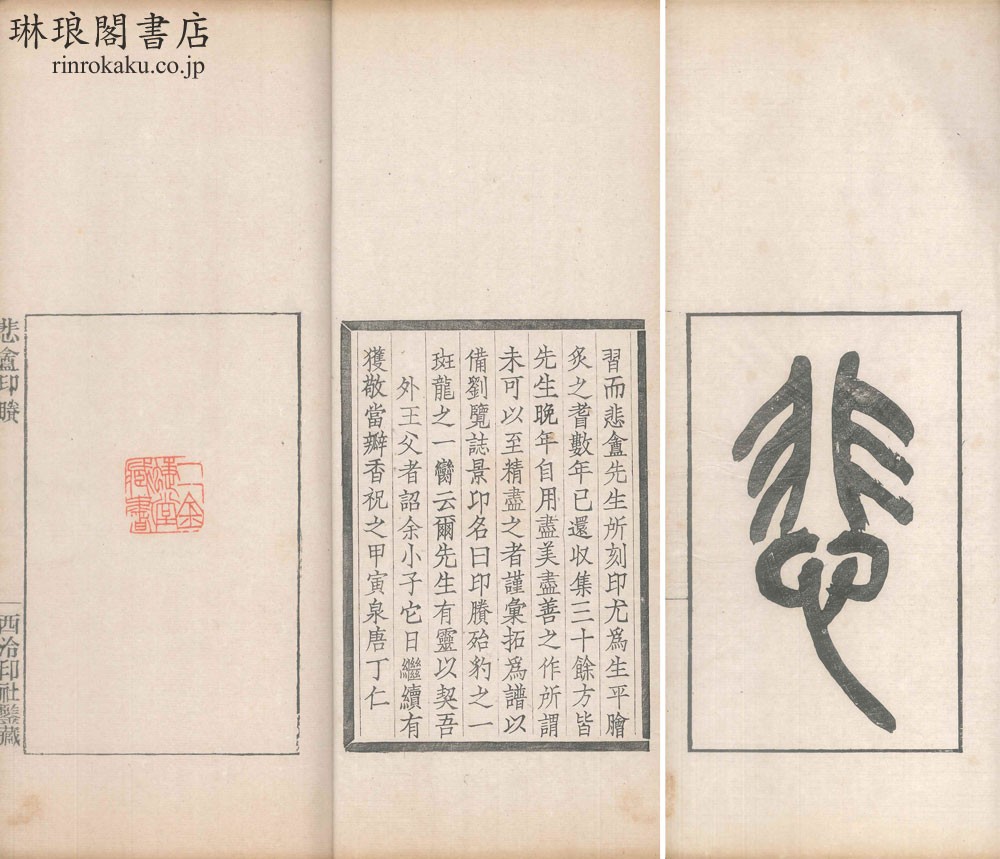 琳琅閣書店
rinrokaku.co.jp
悲
習而悲盦先生所刻印尤爲生平膾
炙之耆數年已還收集三十餘方皆
先生晚年自用盡美盡善之作所謂
未可以至精盡之者謹彙拓爲譜以
備劉覽誌景印名曰印賸殆豹之一
斑龍之一臠云爾先生有靈以契吾
外王父者詔余小子它日繼續有
獲敬當瓣香祝之甲寅泉唐丁仁
二金
蜨堂
藏書
悲盦印賸
西泠印社鑒藏